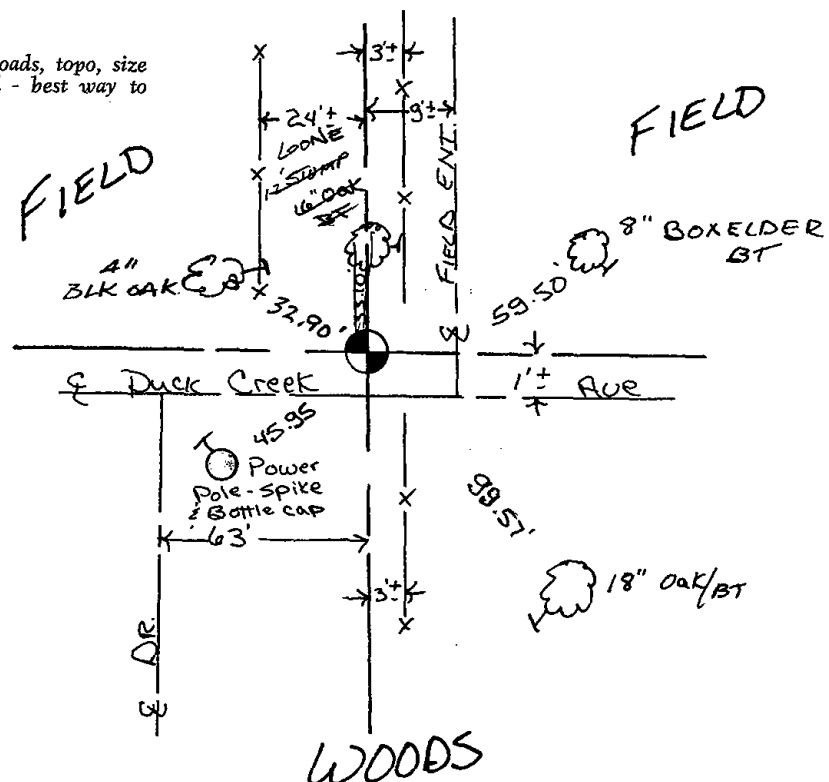 oads, topo, size
- best way to
3'±
24'±
9'±
FIELD
FIELD
GONE
12" STUMP
16" OAK
BT
℄ FIELD ENT.
8" BOXELDER
BT
4"
BLK OAK
32.90'
59.50'
℄ Duck Creek Ave
1'±
45.95
Power
Pole - Spike
& Bottle cap
63'
99.57'
3'±
18" Oak/BT
℄ DR.
WOODS